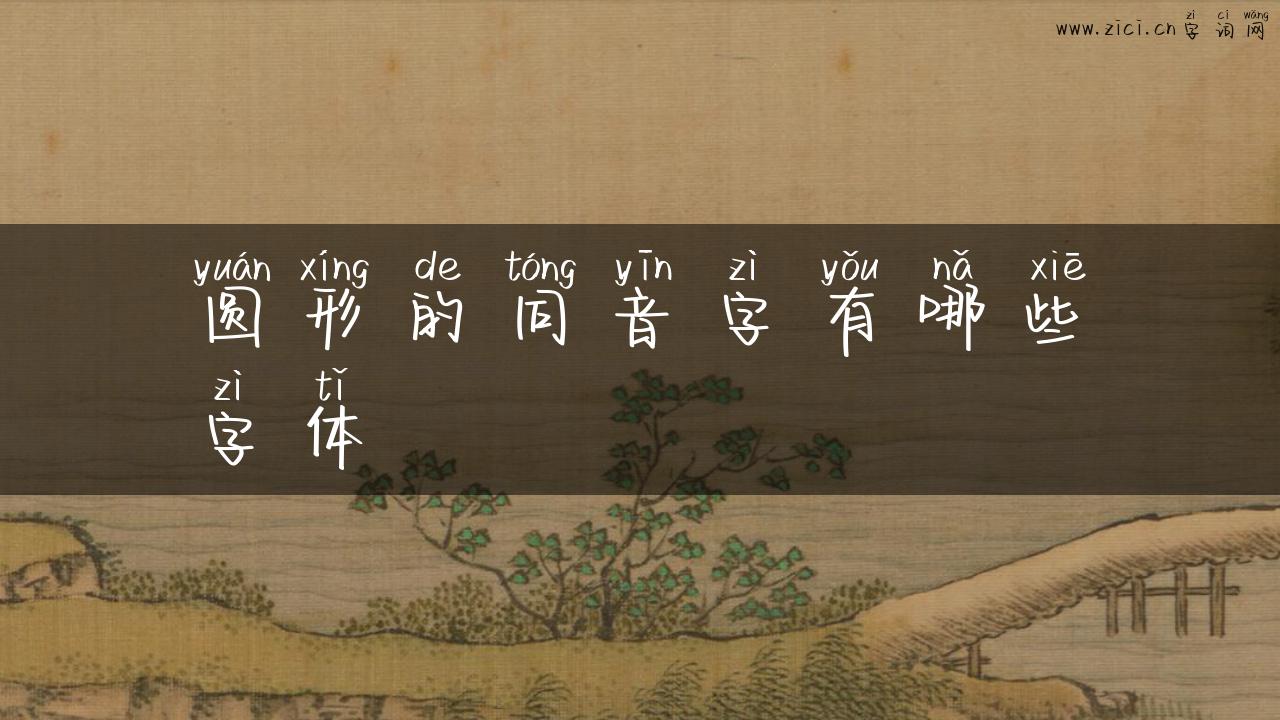 zì cí wǎng
www.zici.cn 字词网
yuán xíng de tóng yīn zì yǒu nǎ xiē
圆形的同音字有哪些
zì tǐ
字体